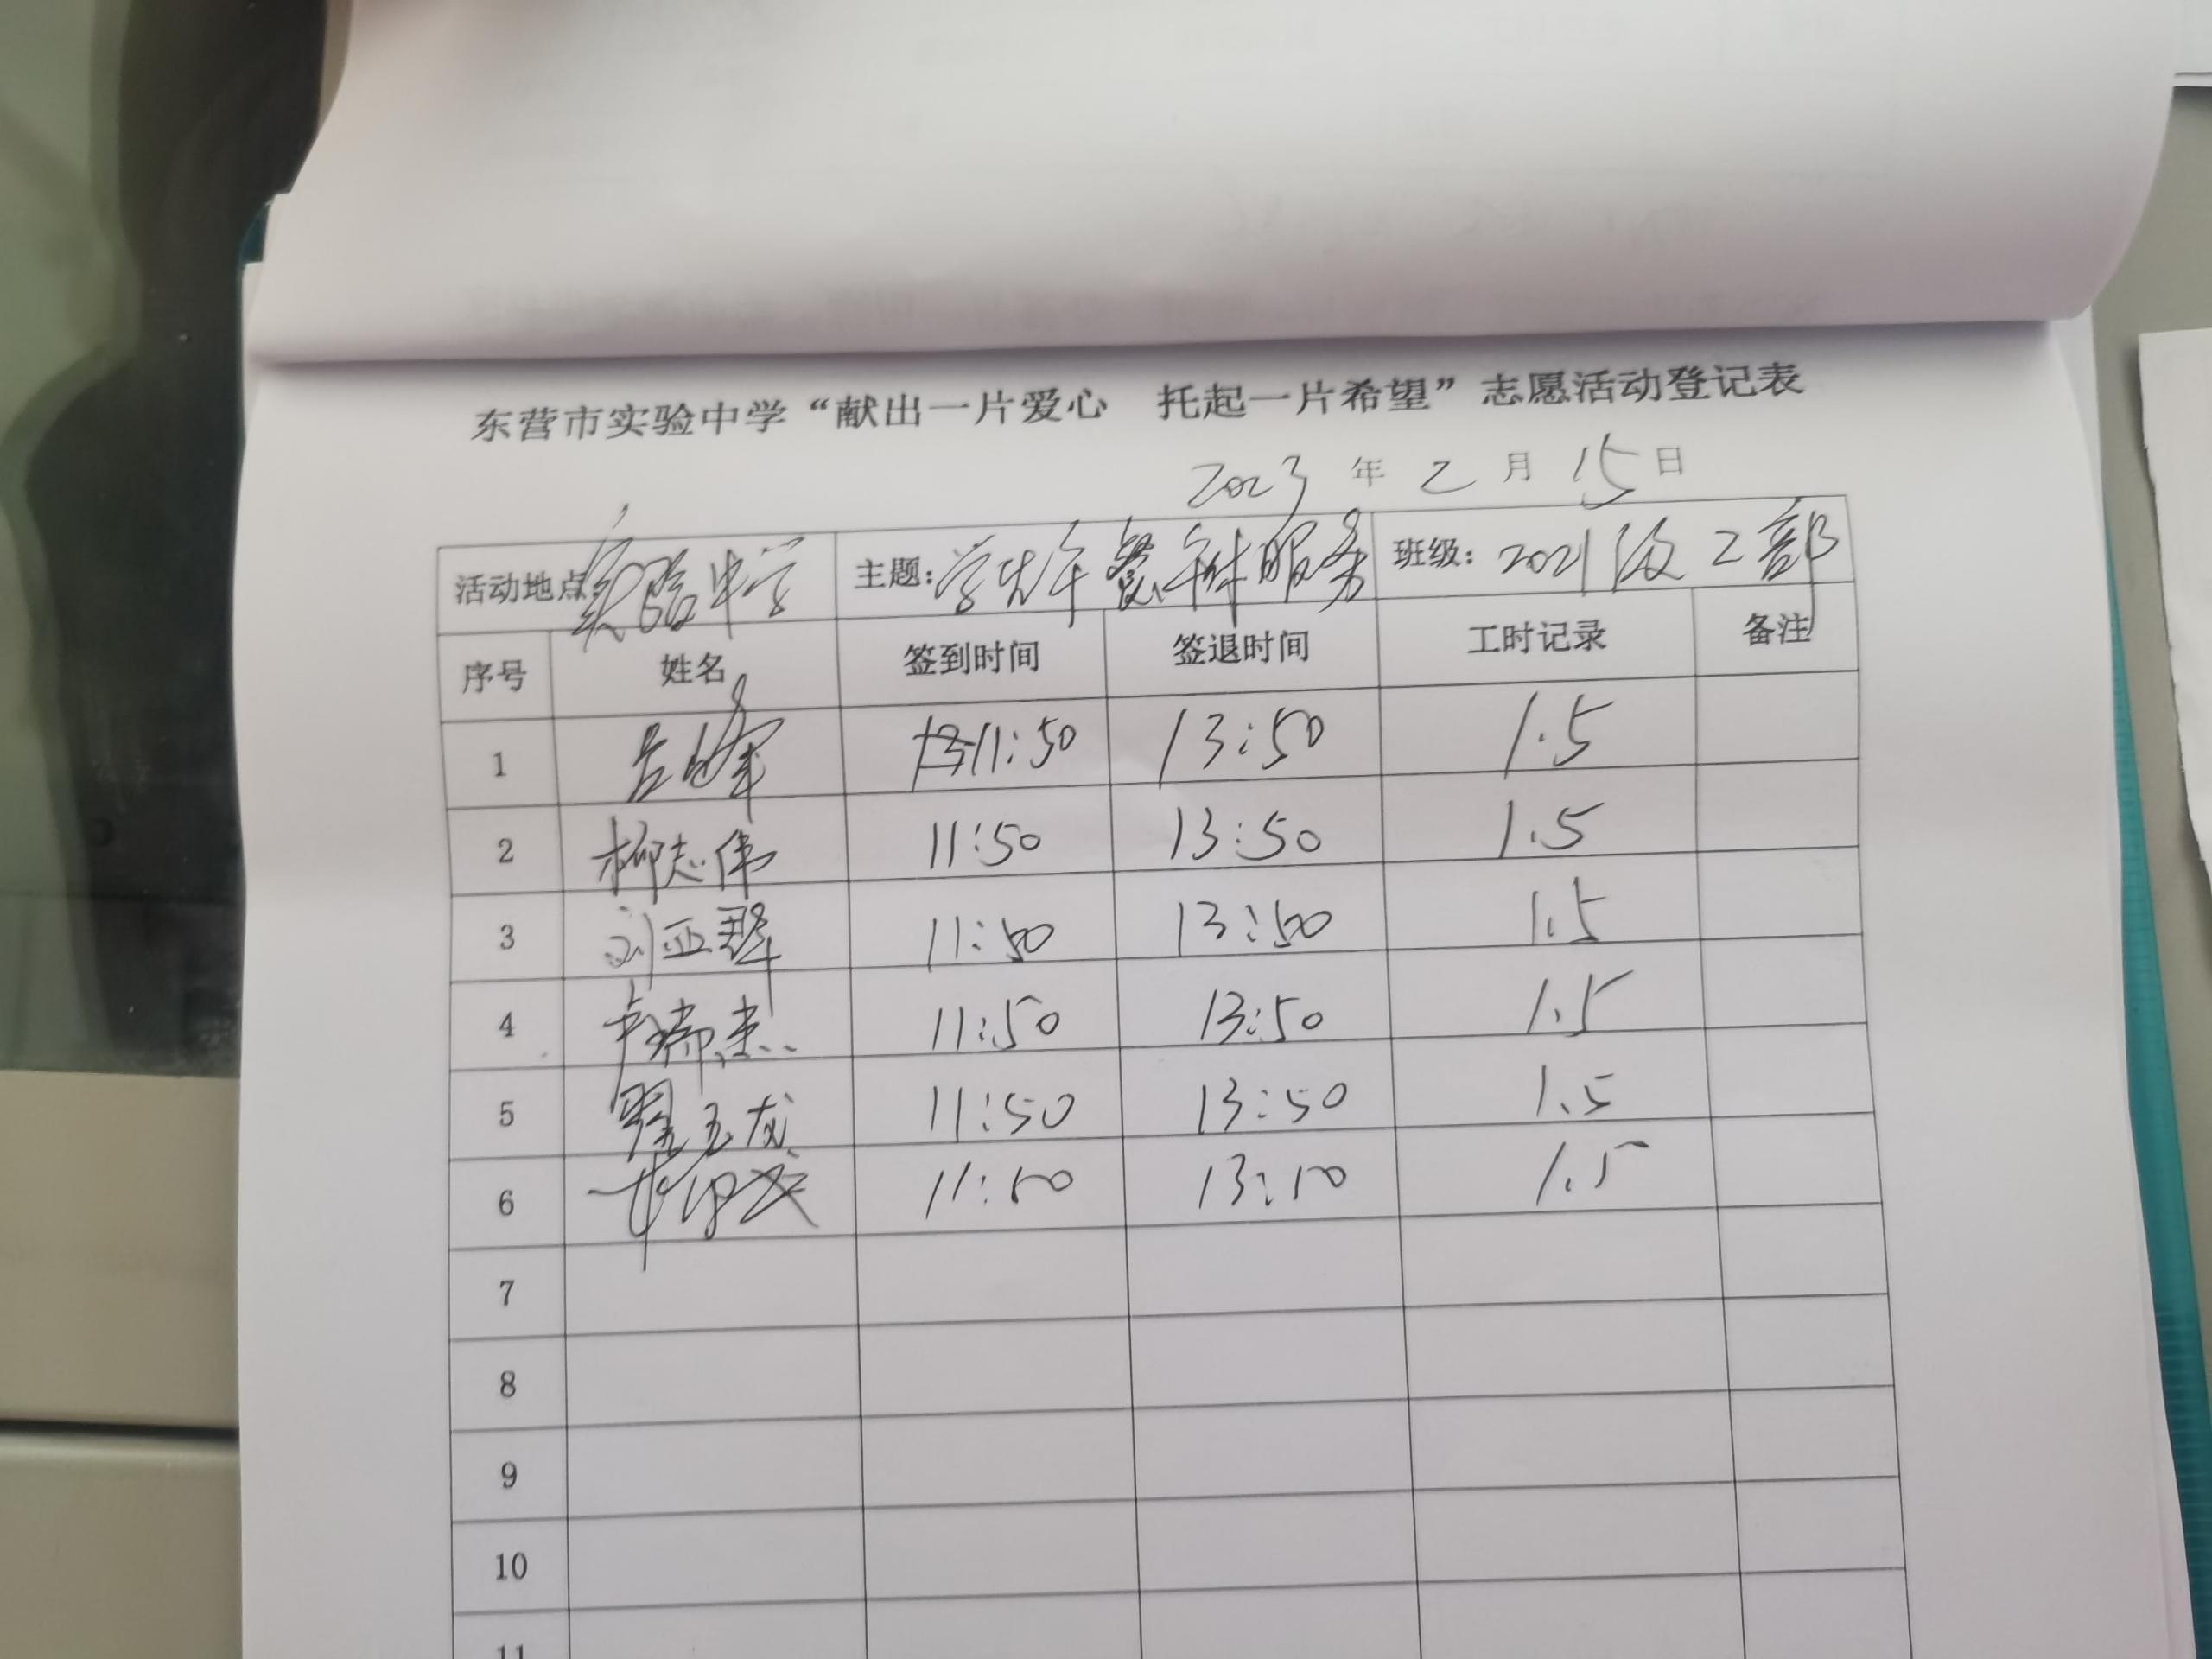 东营市实验中学“献出一片爱心 托起一片希望”志愿活动登记表
2023 年 2 月 15 日
活动地点 实验中学 主题：学生午餐午休服务 班级：2021级2部
序号 姓名 签到时间 签退时间 工时记录 备注
1 11:50 13:50 1.5
2 柳志伟 11:50 13:50 1.5
3 刘亚琴 11:50 13:50 1.5
4 卢瑞杰 11:50 13:50 1.5
5 翟玉龙 11:50 13:50 1.5
6 11:50 13:50 1.5
7
8
9
10
11